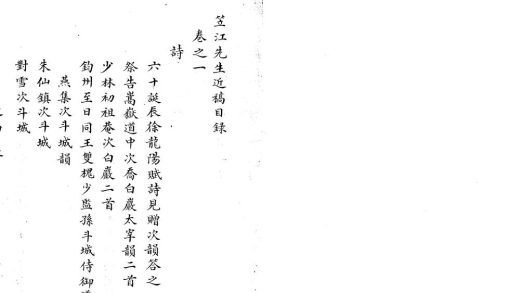 笠江先生近稿目録
卷之一
詩
六十誕辰徐龍陽賦詩見贈次韻答之
祭告嵩嶽道中次喬白巖太宰韻二首
少林初祖菴次白巖二首
鈞州至日同王雙槐少監孫斗城侍御
燕集次斗城韻
朱仙鎮次斗城
對雪次斗城